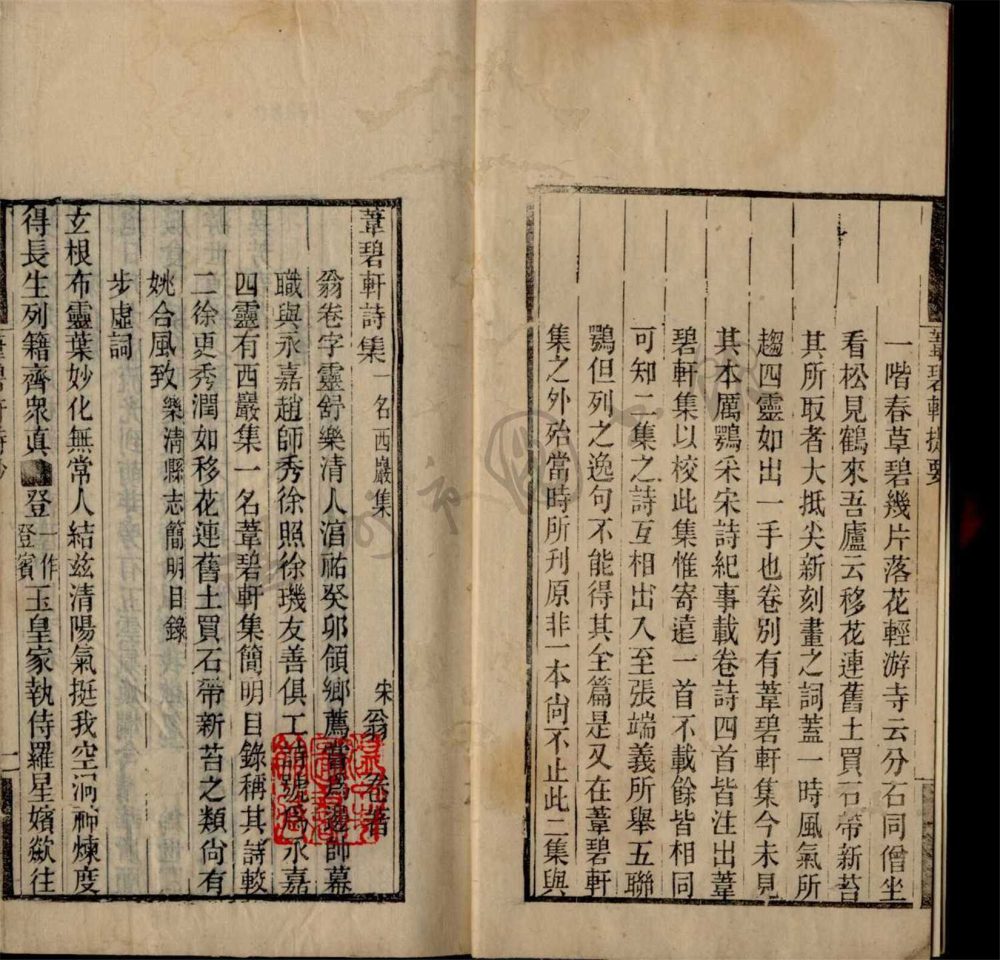 一階春草碧幾片落花輕游寺云分石同僧坐
看松見鶴來吾廬云移花連舊土買石帶新苔
其所取者大抵尖新刻畫之詞蓋一時風氣所
趨四靈如出一手也卷別有葦碧軒集今未見
其本厲鶚宋詩紀事載卷詩四首皆注出葦
碧軒集以校此集惟寄遠一首不載餘皆相同
可知二集之詩互相出入至張端義所舉五聯
鶚但列之逸句不能得其全篇是又在葦碧軒
集之外殆當時所刊原非一本尚不止此二集與
葦碧軒提要
葦碧軒詩集一名西巖集
宋翁卷著
翁卷字靈舒樂清人淳祐癸卯領鄉薦嘗為邊帥幕
職與永嘉趙師秀徐照徐璣友善俱工詩號為永嘉
四靈有西巖集一名葦碧軒集簡明目錄稱其詩較
二徐更秀潤如移花連舊土買石帶新苔之類尚有
姚合風致樂清縣志簡明目錄
步虛詞
玄根布靈葉妙化無常人結茲清陽氣挺我空洞神煉度
得長生列籍齊眾真登一作登賓玉皇家執侍羅星嬪歘往
一